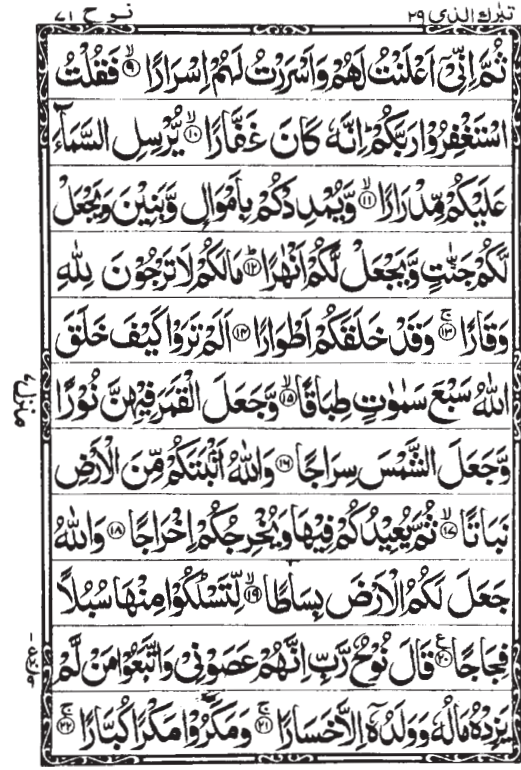 تبٰرك الذی ٢٩
نوح ٧١
ثُمَّ اِنِّیْۤ اَعْلَنْتُ لَهُمْ وَاَسْرَرْتُ لَهُمْ اِسْرَارًا ۙ﴿٩﴾ فَقُلْتُ
اسْتَغْفِرُوْا رَبَّكُمْ ؕ اِنَّهٗ كَانَ غَفَّارًا ۙ﴿١٠﴾ یُّرْسِلِ السَّمَآءَ
عَلَیْكُمْ مِّدْرَارًا ۙ﴿١١﴾ وَّیُمْدِدْكُمْ بِاَمْوَالٍ وَّبَنِیْنَ وَیَجْعَلْ
لَّكُمْ جَنّٰتٍ وَّیَجْعَلْ لَّكُمْ اَنْهٰرًا ؕ﴿١٢﴾ مَا لَكُمْ لَا تَرْجُوْنَ لِلّٰهِ
وَقَارًا ۚ﴿١٣﴾ وَقَدْ خَلَقَكُمْ اَطْوَارًا ﴿١٤﴾ اَلَمْ تَرَوْا كَیْفَ خَلَقَ
اللّٰهُ سَبْعَ سَمٰوٰتٍ طِبَاقًا ۙ﴿١٥﴾ وَّجَعَلَ الْقَمَرَ فِیْهِنَّ نُوْرًا
وَّجَعَلَ الشَّمْسَ سِرَاجًا ﴿١٦﴾ وَاللّٰهُ اَنْۢبَتَكُمْ مِّنَ الْاَرْضِ
نَبَاتًا ۙ﴿١٧﴾ ثُمَّ یُعِیْدُكُمْ فِیْهَا وَیُخْرِجُكُمْ اِخْرَاجًا ﴿١٨﴾ وَاللّٰهُ
جَعَلَ لَكُمُ الْاَرْضَ بِسَاطًا ۙ﴿١٩﴾ لِّتَسْلُكُوْا مِنْهَا سُبُلًا
فِجَاجًا ﴿٢٠﴾ع قَالَ نُوْحٌ رَّبِّ اِنَّهُمْ عَصَوْنِیْ وَاتَّبَعُوْا مَنْ لَّمْ
یَزِدْهُ مَالُهٗ وَوَلَدُهٗۤ اِلَّا خَسَارًا ۚ﴿٢١﴾ وَمَكَرُوْا مَكْرًا كُبَّارًا ۚ﴿٢٢﴾
منزل ٧